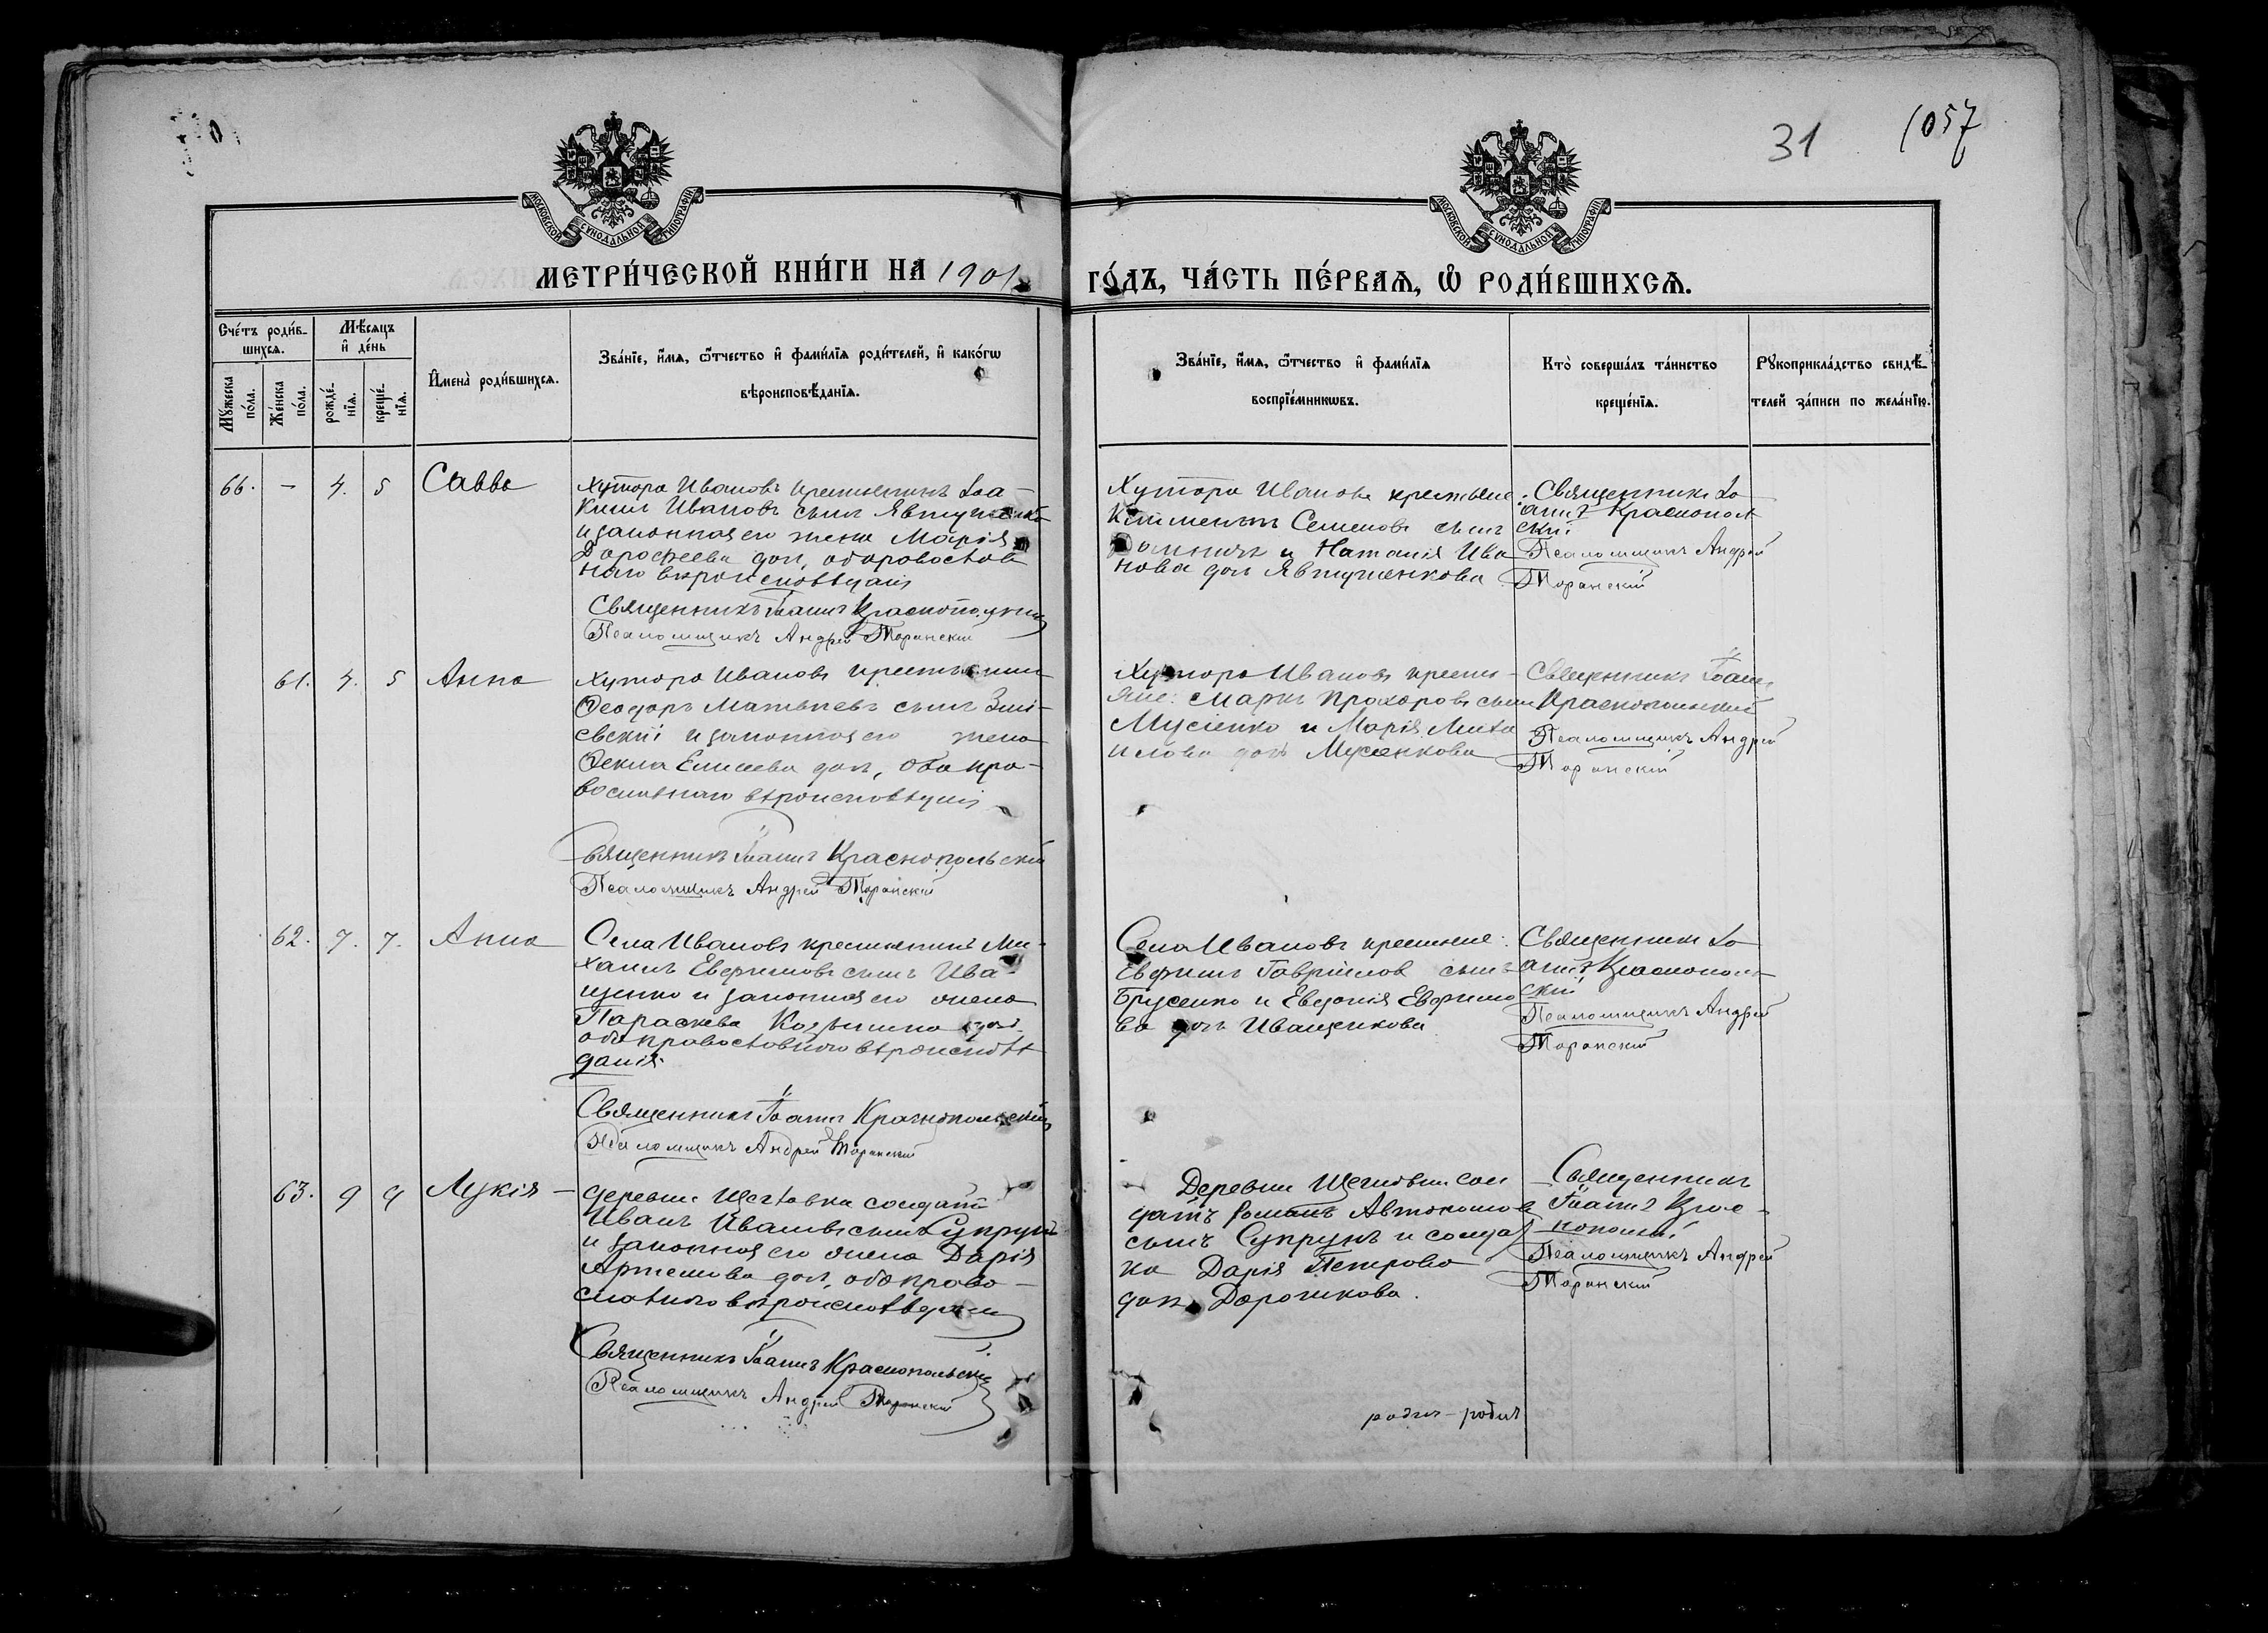 31
1057
МОСКОВСКОЙ СУНОДАЛЬНОЙ ТИПОГРАФІИ
МОСКОВСКОЙ СУНОДАЛЬНОЙ ТИПОГРАФІИ
МЕТРИ́ЧЕСКОЙ КНИ́ГИ НА 1901
ГО́ДЪ, ЧА́СТЬ ПЕ́РВАѦ, Ѡ҆ РОДИ́ВШИХСѦ.
Сче́тъ роди́в-
шихсѧ.
Мꙋ́жеска по́ла.
Же́нска по́ла.
Мѣ́сѧцъ и҆ де́нь
рожде́-нїѧ.
креще́-нїѧ.
И҆мена̀ роди́вшихсѧ.
Зва́нїе, и҆́мѧ, ѻ҆́тчество и҆ фами́лїѧ роди́телей, и҆ како́гѡ
вѣроисповѣ́данїѧ.
Зва́нїе, и҆́мѧ, ѻ҆́тчество и҆ фами́лїѧ
воспрїе́мникѡвъ.
Кто̀ соверша́лъ та́инство
креще́нїѧ.
Рꙋкоприкла́дство свидѣ́-
телей за́писи по жела́нїю.
66. - 4. 5 Савва
Хутора Иванов крестьянинъ Іоа-
кимъ Ивановъ сынъ Явтушенко
и законная его жена Марія
Дорофеева доч, оба православ
наго вероисповѣданія
Священникъ Іоаннъ Краснопольскій
Псаломщикъ Андрей Торанскій
Хутора Иванова крестьяне:
Климентъ Семеновъ сынъ
и Наталія Ива
нова доч Явтушенкова
Священникъ Іо
аннъ Краснополь
скій
Псаломщикъ Андрей
Торанскій
61. 4. 5 Анна
Хутора Иванов крестьянинъ
Ѳеодоръ Матвѣевъ сынъ Змі-
евскій и законная его жена
Ѳекла Елисеева доч, оба пра-
вославнаго вѣроисповѣданія
Священникъ Іоаннъ Краснопольскій
Псаломщикъ Андрей Торанскій
Хутора Иванов крестья-
яне: Маркъ Прохоровъ сынъ
Мусіенко и Марія Миха
илова доч Мусіенкова
Священникъ Іоаннъ
Краснопольскій
Псаломщикъ Андрей
Торанскій
62. 7. 7. Анна
Села Иванов крестьянинъ Ми-
хаилъ Евфимовъ сынъ Ива-
щенко и законная его жена
Параскева Козьмина доч.
оба православнаго вѣроисповѣ
данія
Священникъ Іоаннъ Краснопольскій
Псаломщикъ Андрей Торанскій
Села Иванов крестьяне:
Евфимъ Гавріилов сынъ
Брусенко и Евдокія Евфимо
ва доч Иващенкова
Священникъ Іо
аннъ Краснополь
скій
Псаломщикъ Андрей
Торанскій
63. 9 9 Лукія
Деревни Щегловки солдатъ
Иванъ Ивановъ сынъ Супрунъ
и законная его жена Дарія
Артемова доч, оба право-
славнаго вѣроисповѣданія
Священникъ Іоаннъ Краснопольскій
Псаломщикъ Андрей Торанскій
Деревни Щегловки сол
датъ Романъ Автономов
сынъ Супрунъ и солдат
ка Дарія Петрова
доч Дорошкова.
Священникъ
Іоаннъ Крас-
нопольскій
Псаломщикъ Андрей
Торанскій